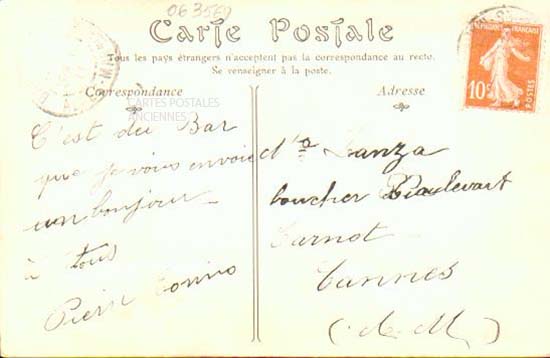 063569
Carte Postale
Tous les pays étrangers n'acceptent pas la correspondance au recto.
Se renseigner à la poste.
Correspondance
Adresse
CARTES POSTALES
ANCIENNES
REPUBLIQUE FRANCAISE
10c
POSTES
C'est du Bar
que je vous envoie
un bonjour
à tous
Pierre
Lanza
boucher Boulevart
Carnot
Cannes
(A. M)